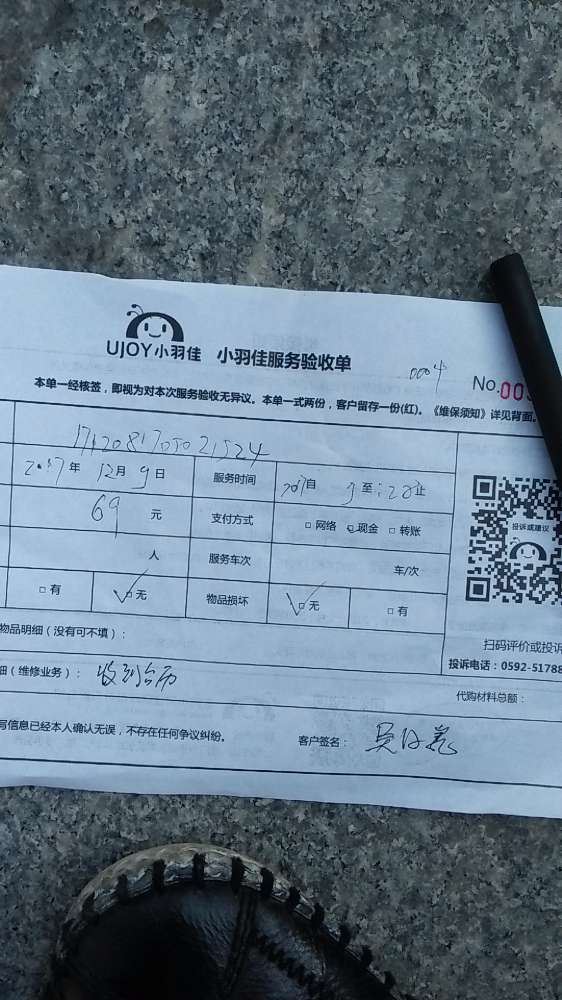 UJOY小羽佳 小羽佳服务验收单
0004 No.00
本单一经核签，即视为对本次服务验收无异议。本单一式两份，客户留存一份(红)。《维保须知》详见背面。
2017年 12月 9日 服务时间 自 至 止
69 元 支付方式 □网络 □现金 □转账
投诉或建议
人 服务车次 车/次
□有 □无 物品损坏 □无 □有
物品明细（没有可不填）：
扫码评价或投诉
投诉电话：0592-51788
细（维修业务）： 收到台历
代购材料总额：
写信息已经本人确认无误，不存在任何争议纠纷。 客户签名：